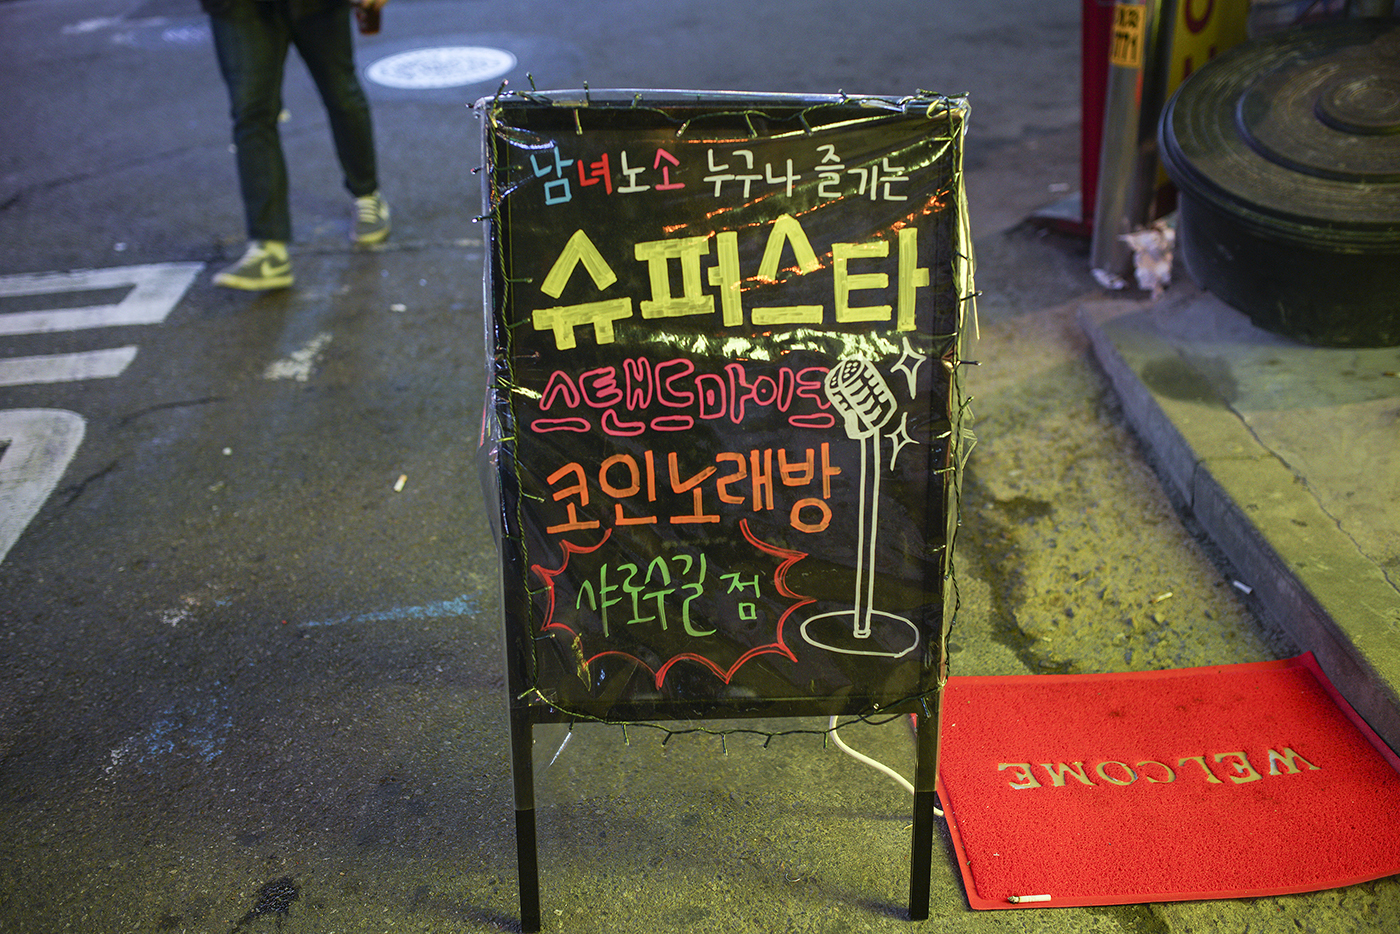 남녀노소 누구나 즐기는
슈퍼스타
스탠드마이크
코인노래방
샤로수길 점
WELCOME
771